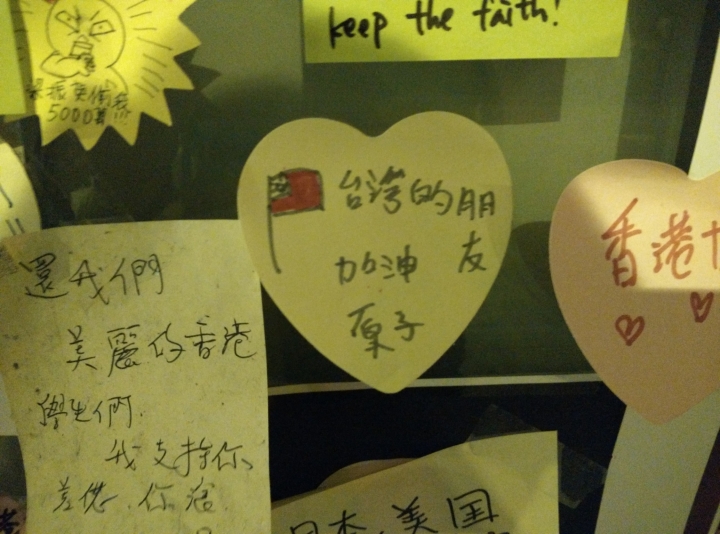 keep the faith!
5000萬
台灣的朋友
加油
原子
香港
還我們
美麗的香港
學生們
我支持你
日本、美国